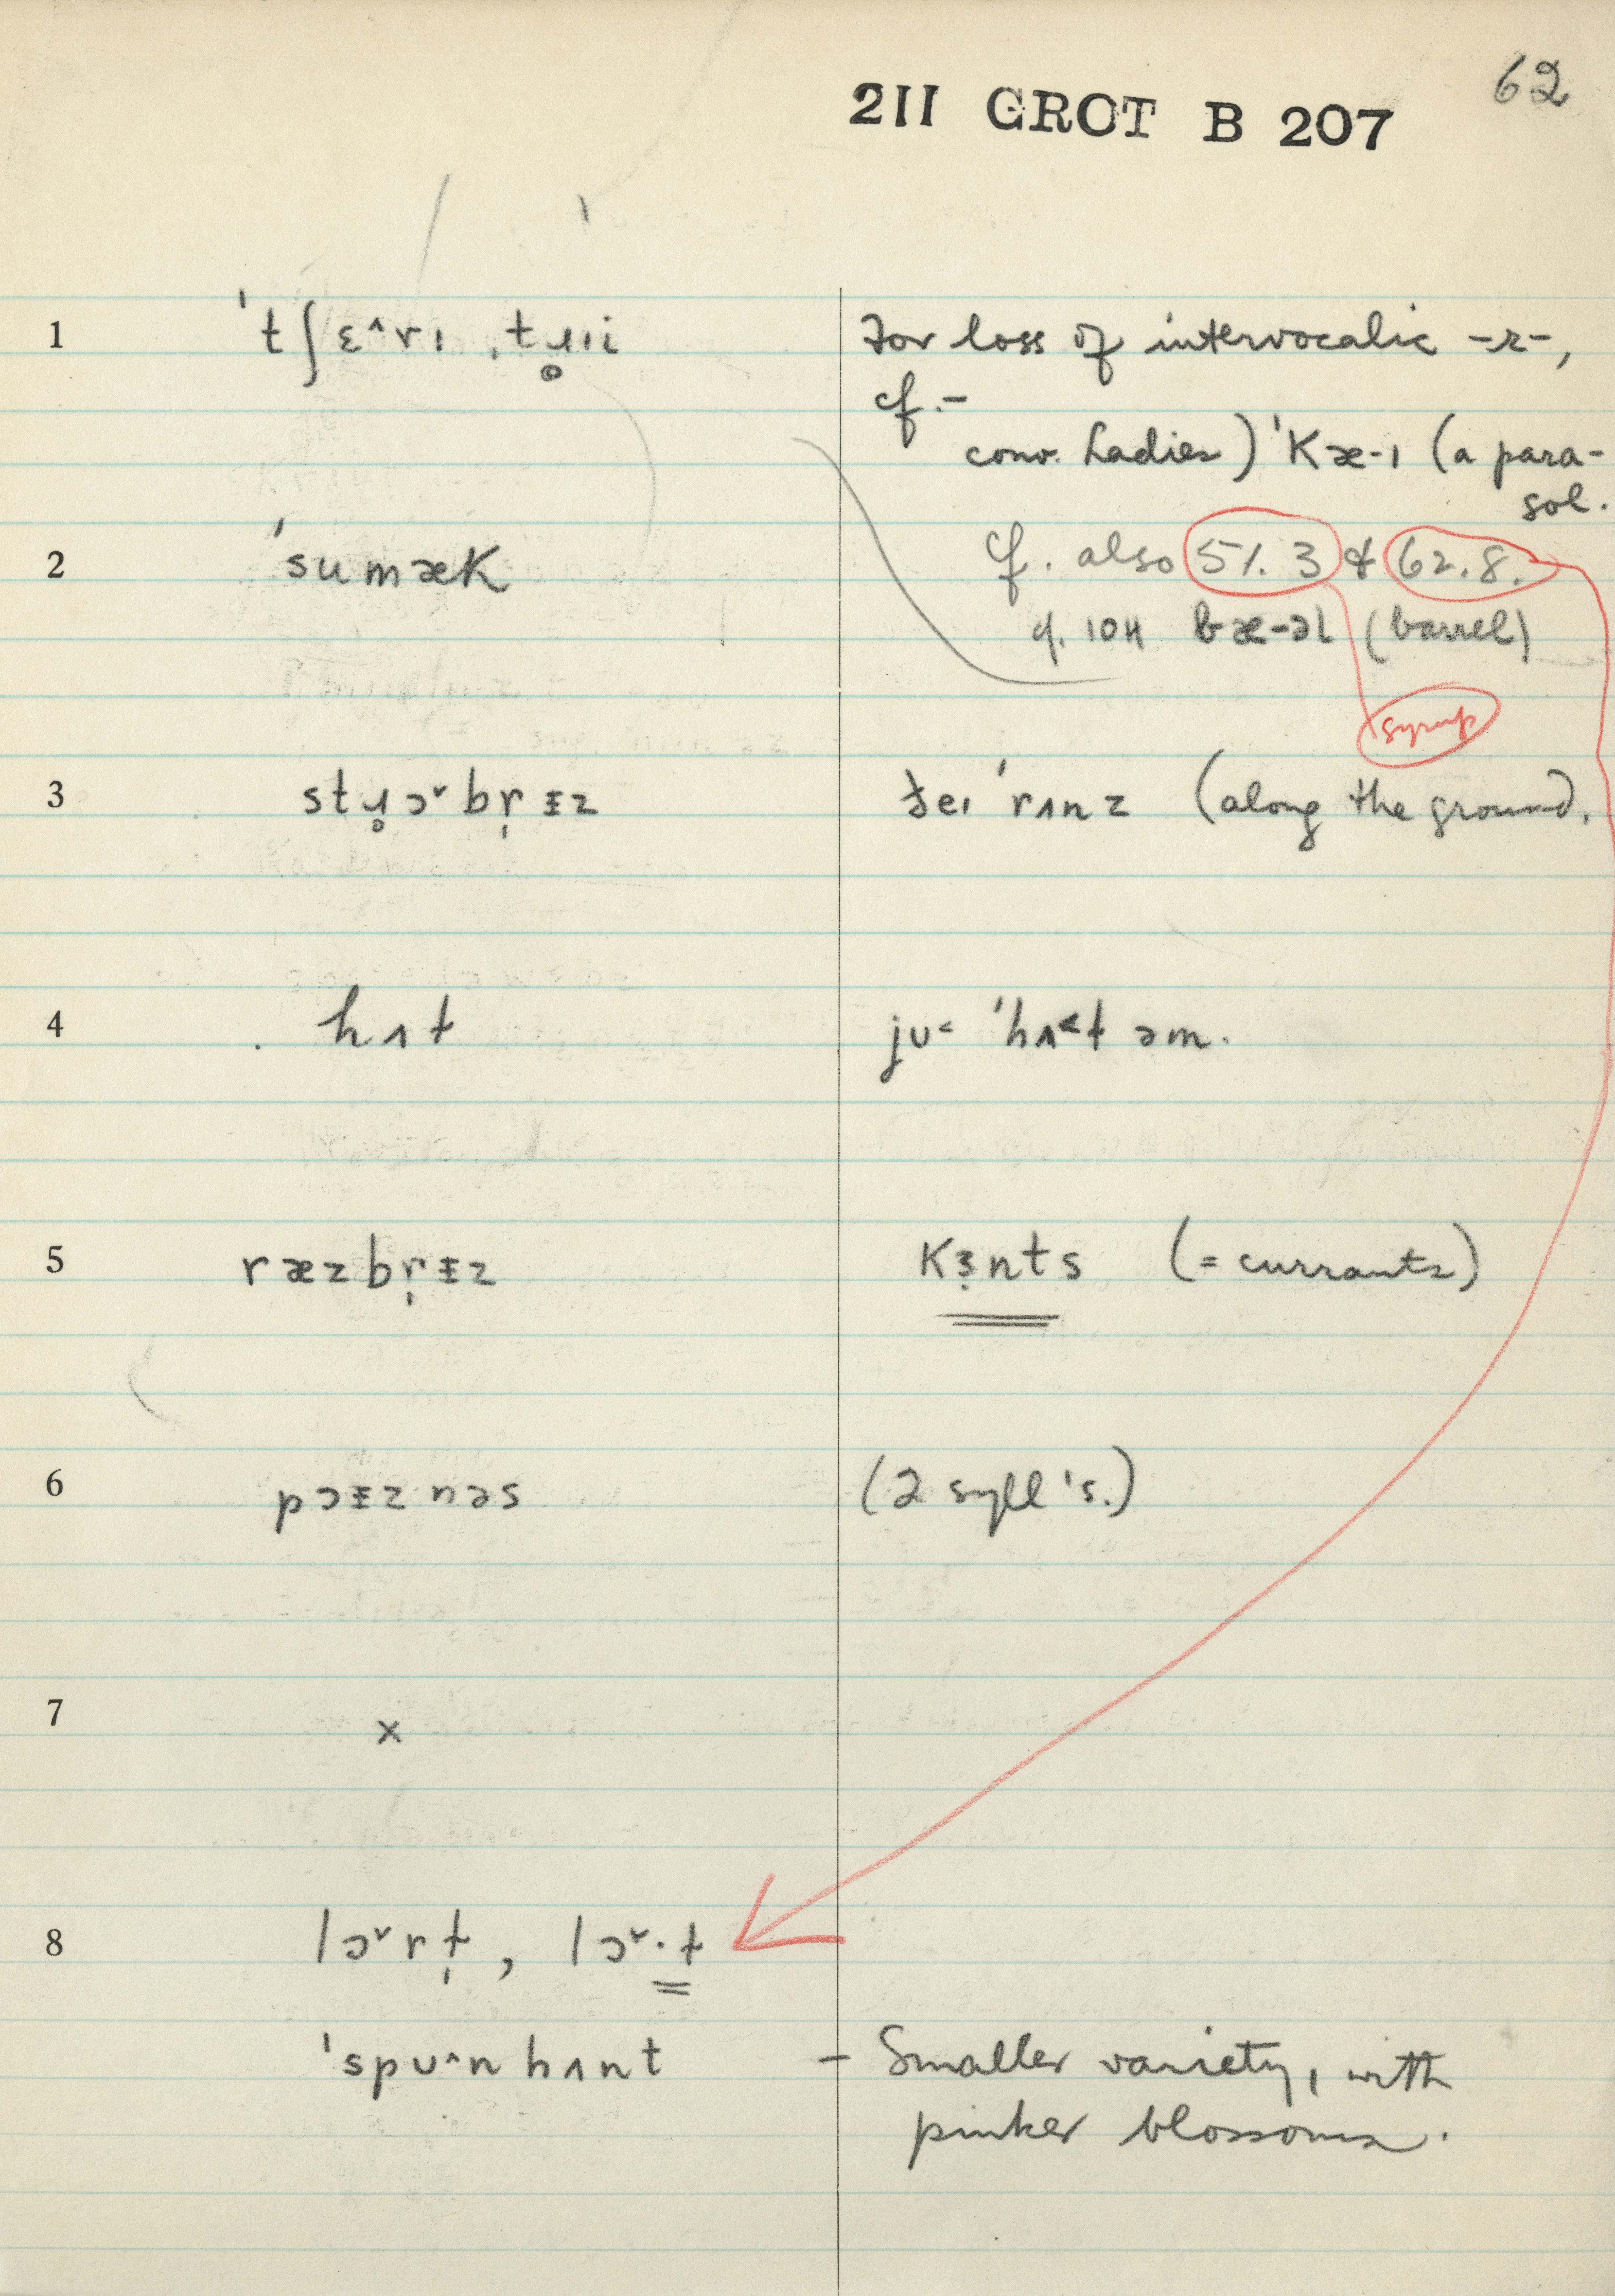 62
211 GROT B 207
1 ˈtʃɛ˄rɪ ˌtɹ̥ɪi For loss of intervocalic -r-,
cf.-
conv. Ladies) ˈKæ-ɪ (a para-
sol.
2 ˈsumæK cf. also 51.3 & 62.8.
cf. 104 bæ-əl (barrel)
syrup
3 stɹ̥ɔ˅br̩ɪz ðeɪ ˈrʌnz (along the ground.
4 hʌt ju˂ ˈhʌ˂t əm.
5 ræzbr̩ɪz Kɜnts (= currants)
6 pɔɪznəs (2 syll's.)
7 x
8 lɔ˅rɫ̩, lɔ˅·ɫ
ˈspu˄nhʌnt – Smaller variety, with
pinker blossoms.